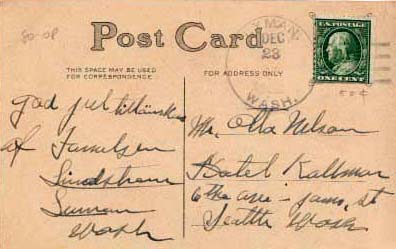 Post Card
THIS SPACE MAY BE USED
FOR CORRESPONDENCE
FOR ADDRESS ONLY
DEC
23
WASH.
U.S. POSTAGE
ONE CENT
god jul tillönskas
af Familjen
Lindstrom
Sumner
Wash
Mr. Otto Nelson
Hotel Kallmar
6the ave - James st
Seattle Wash